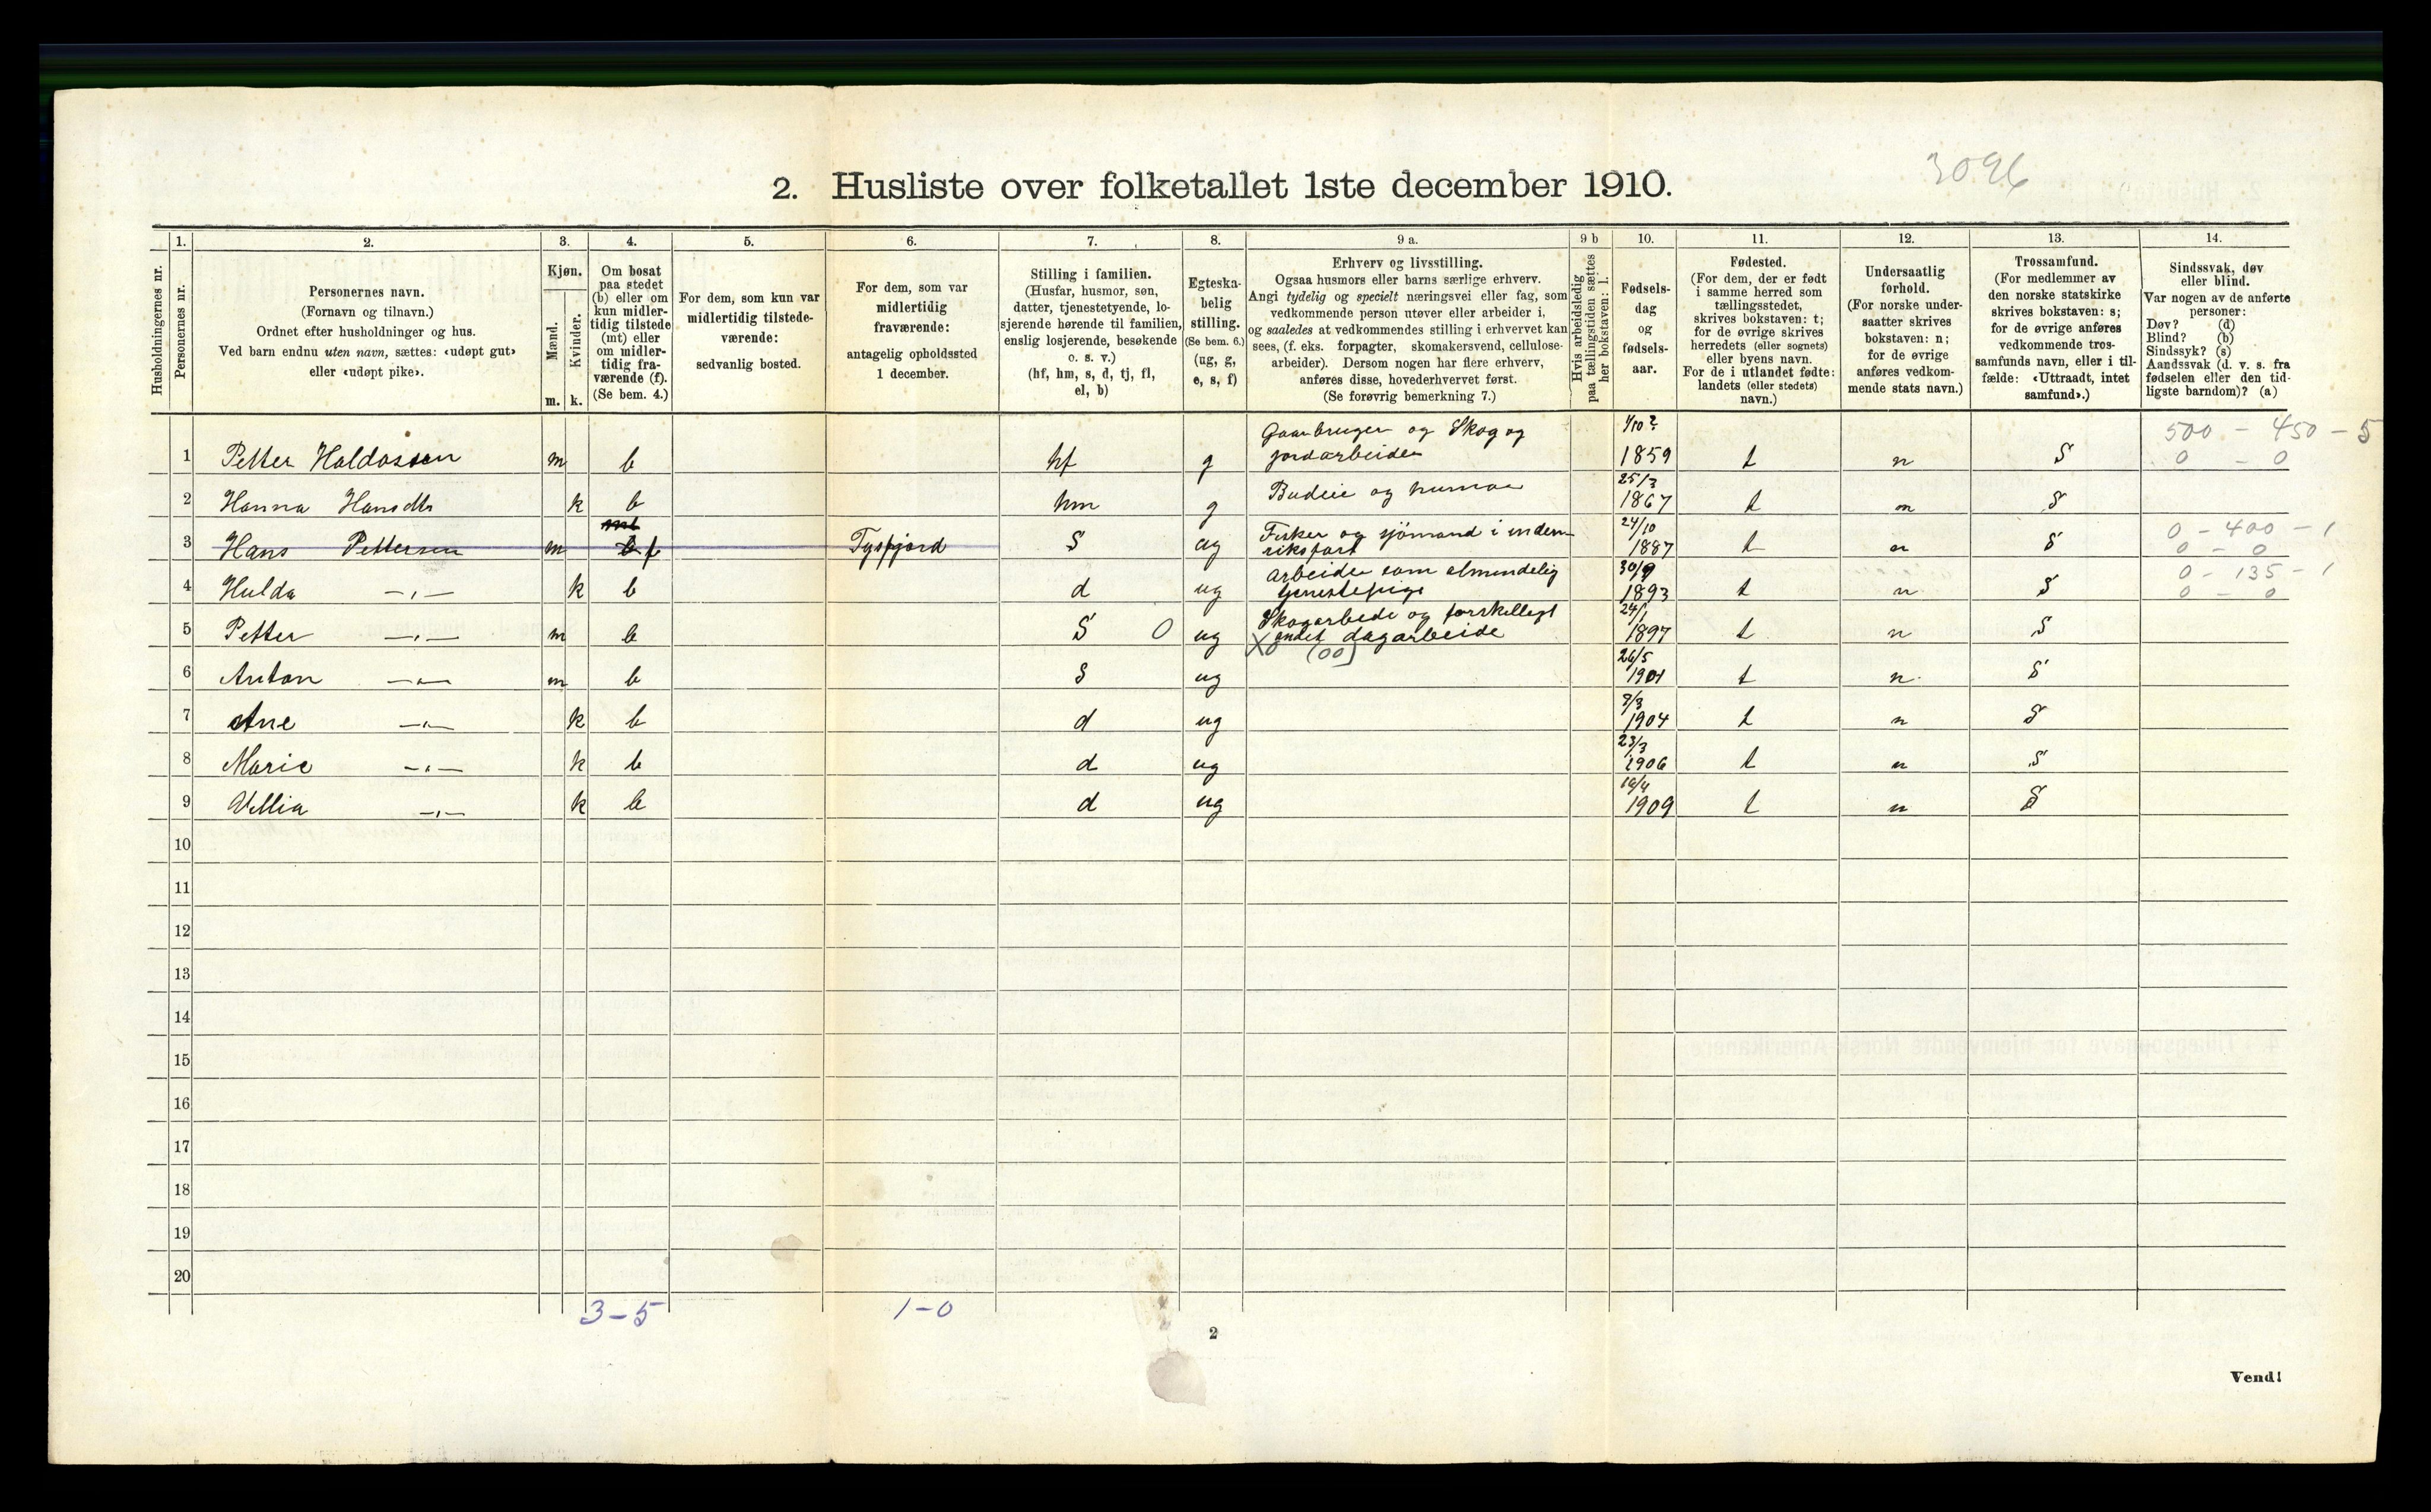 3096
2. Husliste over folketallet 1ste december 1910.
1. 2. 3. 4. 5. 6. 7. 8. 9 a. 9 b 10. 11. 12. 13. 14.
Husholdningernes nr.
Personernes nr.
Personernes navn.
(Fornavn og tilnavn.)
Ordnet efter husholdninger og hus.
Ved barn endnu uten navn, sættes: «udøpt gut»
eller «udøpt pike».
Kjøn.
Mænd.
Kvinder.
m. k.
Om bosat
paa stedet
(b) eller om
kun midler-
tidig tilstede
(mt) eller
om midler-
tidig fra-
værende (f).
(Se bem. 4.)
For dem, som kun var
midlertidig tilstede-
værende:
sedvanlig bosted.
For dem, som var
midlertidig
fraværende:
antagelig opholdssted
1 december.
Stilling i familien.
(Husfar, husmor, søn,
datter, tjenestetyende, lo-
sjerende hørende til familien,
enslig losjerende, besøkende
o. s. v.)
(hf, hm, s, d, tj, fl,
el, b)
Egteska-
belig
stilling.
(Se bem. 6.)
(ug, g,
e, s, f)
Erhverv og livsstilling.
Ogsaa husmors eller barns særlige erhverv.
Angi tydelig og specielt næringsvei eller fag, som
vedkommende person utøver eller arbeider i,
og saaledes at vedkommendes stilling i erhvervet kan
sees, (f. eks. forpagter, skomakersvend, cellulose-
arbeider). Dersom nogen har flere erhverv,
anføres disse, hovederhvervet først.
(Se forøvrig bemerkning 7.)
Hvis arbeidsledig
paa tællingstiden sættes
her bokstaven: l.
Fødsels-
dag
og
fødsels-
aar.
Fødested.
(For dem, der er født
i samme herred som
tællingsstedet,
skrives bokstaven: t;
for de øvrige skrives
herredets (eller sognets)
eller byens navn.
For de i utlandet fødte:
landets (eller stedets)
navn.)
Undersaatlig
forhold.
(For norske under-
saatter skrives
bokstaven: n;
for de øvrige
anføres vedkom-
mende stats navn.)
Trossamfund.
(For medlemmer av
den norske statskirke
skrives bokstaven: s;
for de øvrige anføres
vedkommende tros-
samfunds navn, eller i til-
fælde: «Uttraadt, intet
samfund».)
Sindssvak, døv
eller blind.
Var nogen av de anførte
personer:
Døv? (d)
Blind? (b)
Sindssyk? (s)
Aandssvak (d. v. s. fra
fødselen eller den tid-
ligste barndom)? (a)
Gaarbruger og Skog og 1/10? 500 - 450 - 5
1 Petter Haldossen m b hf g jordarbeider 1859 t n S 0 - 0
25/3
2 Hanna Hansdtr k b hm g Budeie og 1867 t n S
mt 24/10 0 - 400 - 1
3 Hans Pettersen m b f Tysfjord S ug Fisker og sjömand i inden-
riksfart 1887 t n S 0 - 0
30/9 0 - 135 - 1
4 Hulda -„- k b d ug arbeider som almindelig
tjenestepige 1893 t n S 0 - 0
24/1
5 Petter -„- m b S 0 ug Skogarbeide og forskelligt
X andet dagarbeide 1897 t n S
(00)
26/5
6 Anton -„- m b S ug 1901 t n S
8/3
7 Ane -„- k b d ug 1904 t n S
23/3
8 Marie -„- k b d ug 1906 t n S
16/4
9 Vellia -„- k b d ug 1909 t n S
10
11
12
13
14
15
16
17
18
19
20
3-5 1-0
2
Vend!